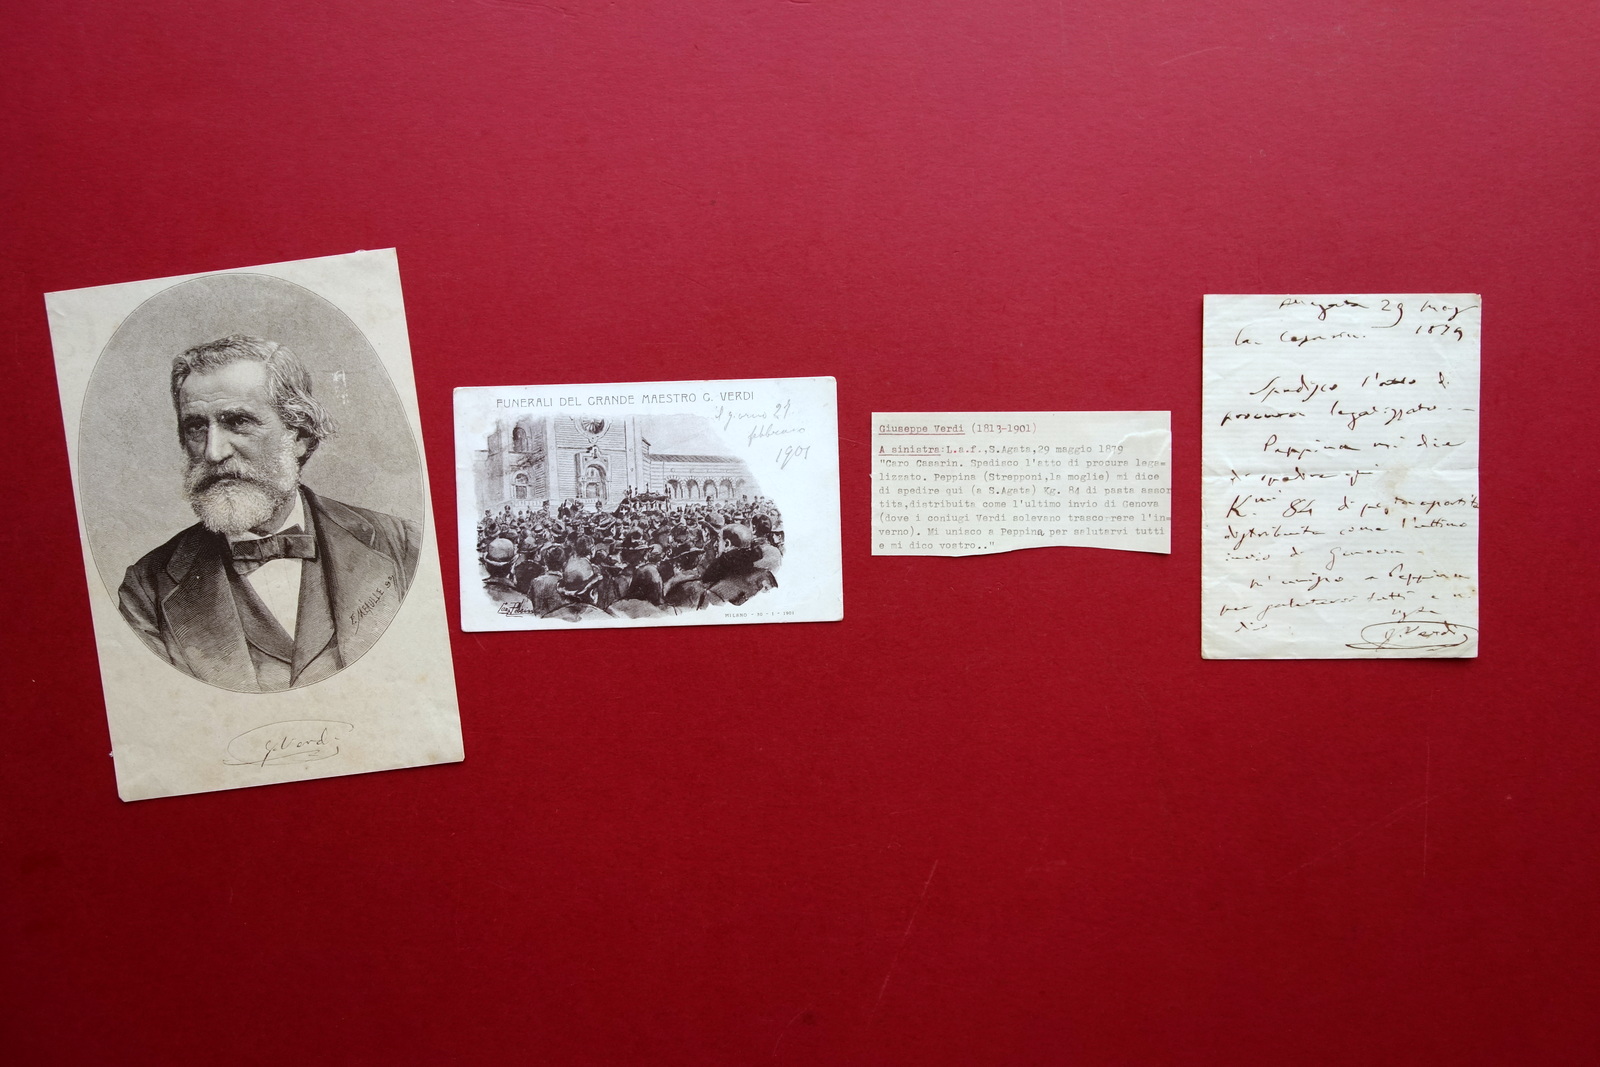 E. MEHULLE 92
G. Verdi
FUNERALI DEL GRANDE MAESTRO G. VERDI
il giorno 27
febbraio
1901
MILANO - 30 - 1 - 1901
Giuseppe Verdi (1813-1901)
A sinistra:L.a.f.,S.Agata,29 maggio 1879
"Caro Casarin. Spedisco l'atto di procura lega=
lizzato. Peppina (Strepponi,la moglie) mi dice
di spedire qui (a S.Agata) Kg. 84 di pasta assor
tita,distribuita come l'ultimo invio di Genova
(dove i coniugi Verdi solevano trascorrere l'in=
verno). Mi unisco a Peppina per salutarvi tutti
e mi dico vostro.."
29 mag
1879
Spedisco l'atto di
procura legalizzato
Peppina mi dice
di spedire qui
K. 84 di
distribuita come l'ultimo
invio di Genova
M'unisco a Peppina
per salutarvi tutti e mi
dico
G. Verdi